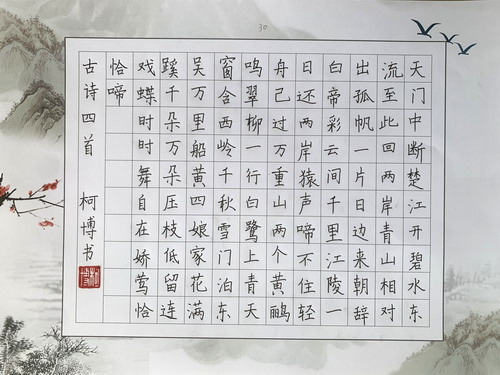 30
天门中断楚江开碧水东
流至此回两岸青山相对
出孤帆一片日边来朝辞
白帝彩云间千里江陵一
日还两岸猿声啼不住轻
舟已过万重山两个黄鹂
鸣翠柳一行白鹭上青天
窗含西岭千秋雪门泊东
吴万里船黄四娘家花满
蹊千朵万朵压枝低留连
戏蝶时时舞自在娇莺恰
恰啼
古诗四首 柯博书